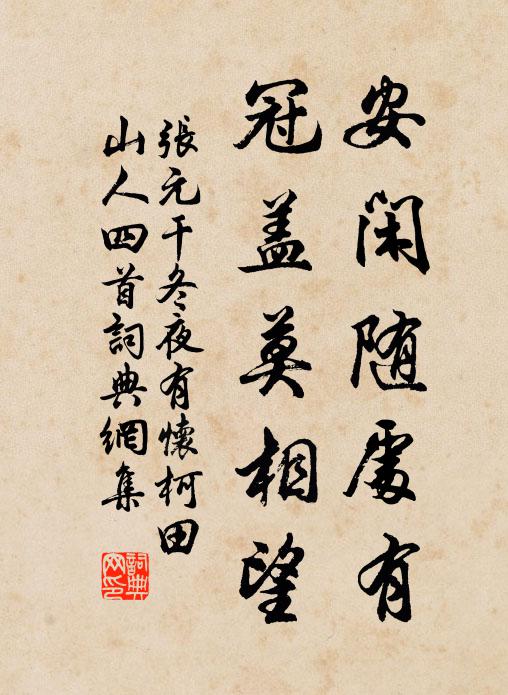 安閑随處有
冠盖莫相望
張元干冬夜有懷柯田
山人四首詞典網集
詞典
网印